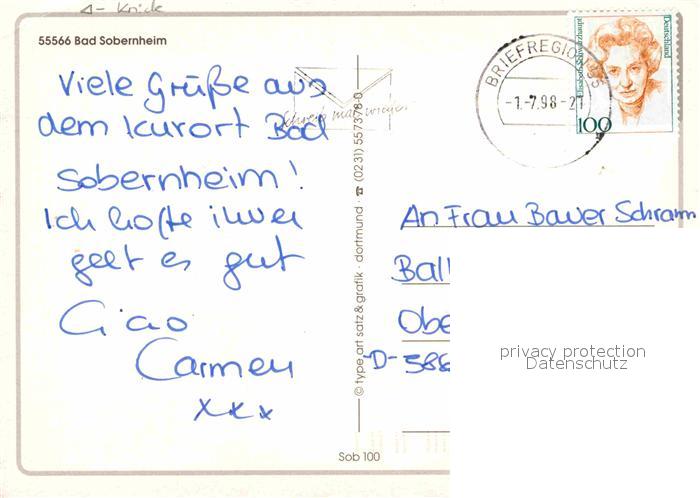 △ - Knick
55566 Bad Sobernheim
Viele Grüße aus
dem Kurort Bad
Sobernheim!
Ich hoffe ihnen
geht es gut
Ciao
Carmen
xxx
Schreib mal wieder
© type art satz & grafik · dortmund · ☎ (0231) 557378-0
Sob 100
BRIEFREGION 55
-1.-7.98-21
Elisabeth Schwarzhaupt
Deutschland
100
An Frau Bauer Schramm
Ball
Obe
D-388
privacy protection
Datenschutz